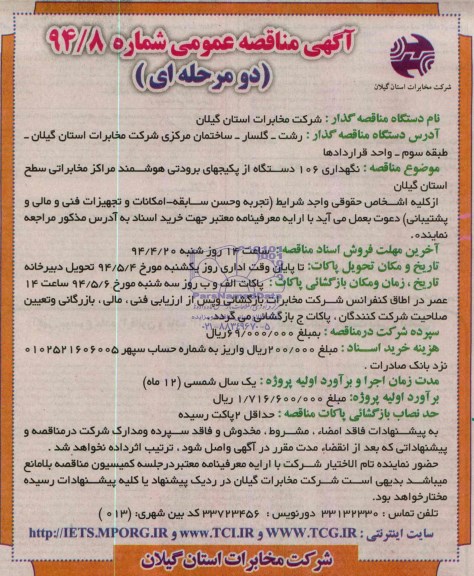 آگهی مناقصه عمومی شماره ۹۴/۸
(دو مرحله ای)
شرکت مخابرات استان گیلان
نام دستگاه مناقصه گذار : شرکت مخابرات استان گیلان
آدرس دستگاه مناقصه گذار : رشت ـ گلسار ـ ساختمان مرکزی شرکت مخابرات استان گیلان ـ
طبقه سوم ـ واحد قراردادها
موضوع مناقصه : نگهداری ۱۰۶ دستگاه از پکیجهای برودتی هوشمند مراکز مخابراتی سطح
استان گیلان
ازکلیه اشخاص حقوقی واجد شرایط (تجربه وحسن سابقه-امکانات و تجهیزات فنی و مالی و
پشتیبانی) دعوت بعمل می آید با ارایه معرفینامه معتبر جهت خرید اسناد به آدرس مذکور مراجعه
نمایند.
آخرین مهلت فروش اسناد مناقصه: ساعت ۱۴ روز شنبه ۹۴/۴/۲۰
تاریخ و مکان تحویل پاکات: تا پایان وقت اداری روز یکشنبه مورخ ۹۴/۵/۴ تحویل دبیرخانه
تاریخ ، زمان ومکان بازگشائی پاکات : پاکات الف و ب روز سه شنبه مورخ ۹۴/۵/۶ ساعت ۱۴
عصر در اطاق کنفرانس شرکت مخابرات بازگشائی وپس از ارزیابی فنی ، مالی ، بازرگانی وتعیین
صلاحیت شرکت کنندگان ، پاکات ج بازگشائی می گردد .
سپرده شرکت درمناقصه : بمبلغ ۶۹/۰۰۰/۰۰۰ریال
هزینه خرید اسناد : مبلغ ۲۰۰/۰۰۰ریال واریز به شماره حساب سپهر ۰۱۰۲۵۲۱۶۰۶۰۰۵
نزد بانک صادرات .
مدت زمان اجرا و برآورد اولیه پروژه : یک سال شمسی (۱۲ ماه)
برآورد اولیه پروژه: مبلغ ۱/۷۱۶/۶۰۰/۰۰۰ ریال
حد نصاب بازگشائی پاکات مناقصه : حداقل ۲پاکت رسیده
به پیشنهادات فاقد امضاء ، مشروط ، مخدوش و فاقد سپرده ومدارک شرکت درمناقصه و
پیشنهاداتی که بعد از انقضاء مدت مقرر در آگهی واصل شود ، ترتیب اثرداده نخواهد شد .
حضور نماینده تام الاختیار شرکت با ارایه معرفینامه معتبردرجلسه کمیسیون مناقصه بلامانع
میباشد بدیهی است شرکت مخابرات گیلان در ردیک پیشنهاد یا کلیه پیشنهادات رسیده
مختارخواهد بود.
تلفن تماس : ۳۳۱۳۲۳۳۰ دورنویس : ۳۳۷۲۳۴۵۶ کد بین شهری: (۰۱۳)
سایت اینترنتی : WWW.TCG.IR و www.TCI.IR و http://IETS.MPORG.IR
شرکت مخابرات استان گیلان